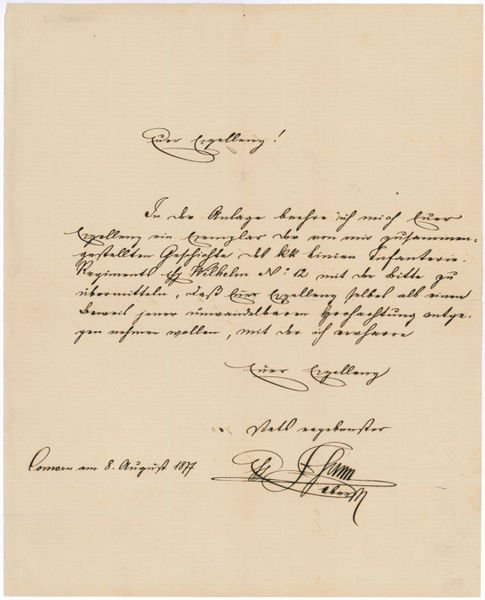 Euer Exzellenz!
In der Anlage beehre ich mich Euer
Exzellenz ein Exemplar der von mir zusammen-
gestellten Geschichte des kk Linien Infanterie-
Regiments Ehz Wilhelm No 12 mit der Bitte zu
übermitteln, daß Euer Exzellenz selbes als einen
Beweis jener unwandelbaren Hochachtung entge-
gen nehmen wollen, mit der ich verharre
Euer Exzellenz
stets ergebenster
Comorn am 8. August 1877
Oberst